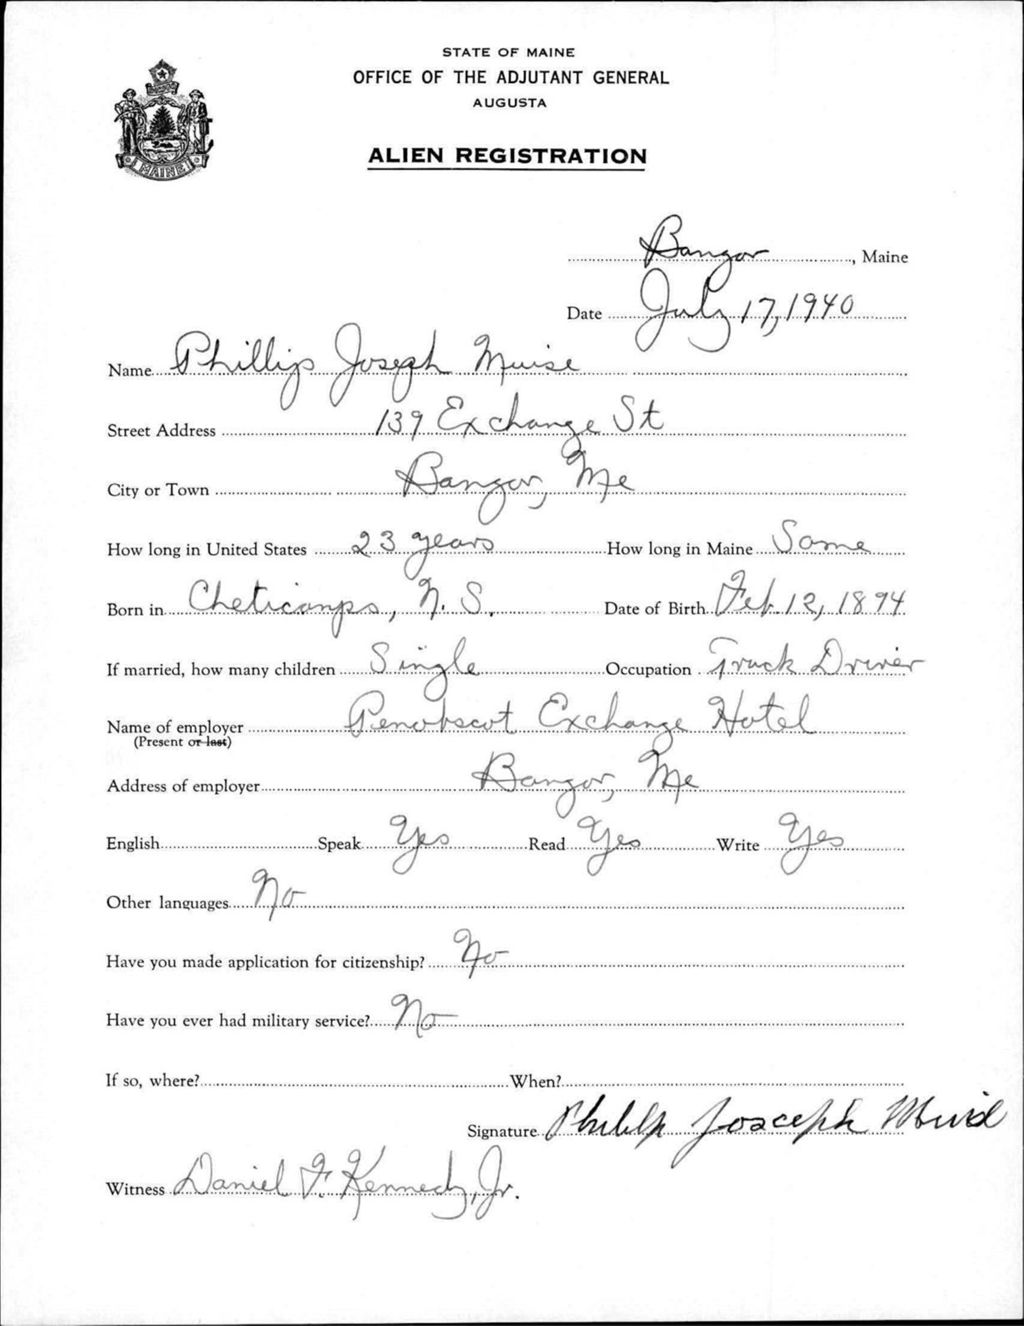 STATE OF MAINE
OFFICE OF THE ADJUTANT GENERAL
AUGUSTA
ALIEN REGISTRATION
MAINE
Bangor, Maine
Date July 17, 1940
Name Phillip Joseph Muise
Street Address 139 Exchange St
City or Town Bangor, Me
How long in United States 23 years How long in Maine Same
Born in Cheticamps, N. S. Date of Birth Feb. 12, 1894
If married, how many children Single Occupation Truck Driver
Name of employer Penobscot Exchange Hotel
(Present or last)
Address of employer Bangor, Me
English Speak Yes Read Yes Write Yes
Other languages No
Have you made application for citizenship? No
Have you ever had military service? No
If so, where? When?
Signature Joseph
Witness Daniel F. Kennedy, Jr.